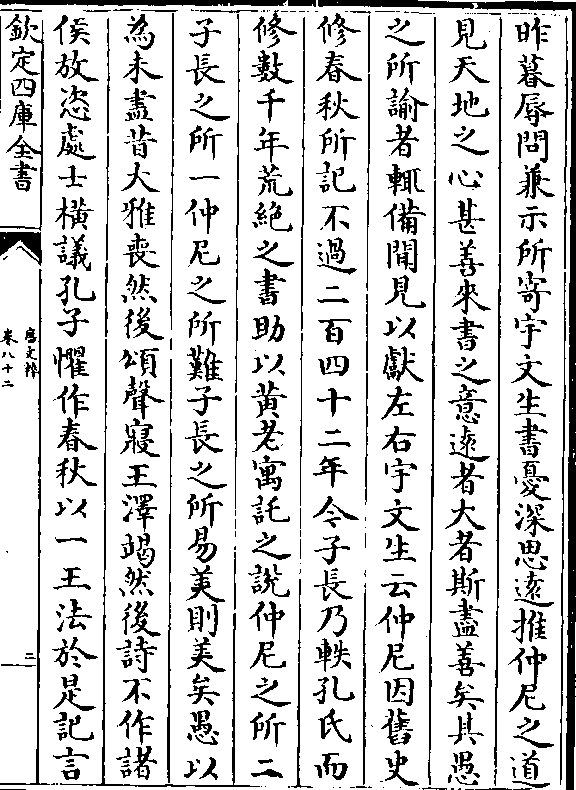 昨暮辱問兼示所寄宇文生書憂深思遠推仲尼之道
見天地之心甚善來書之意遠者大者斯盡善矣其愚
之所諭者輒備聞見以獻左右宇文生云仲尼因舊史
修春秋所記不過二百四十二年今子長乃軼孔氏而
修數千年荒絶之書助以黄老寓託之說仲尼之所二
子長之所一仲尼之所難子長之所易美則美矣愚以
為未盡昔大雅喪然後頌聲寢王澤竭然後詩不作諸
侯放恣處士橫議孔子懼作春秋以一王法於是記言
欽定四庫全書
唐文粹
卷八十二
二